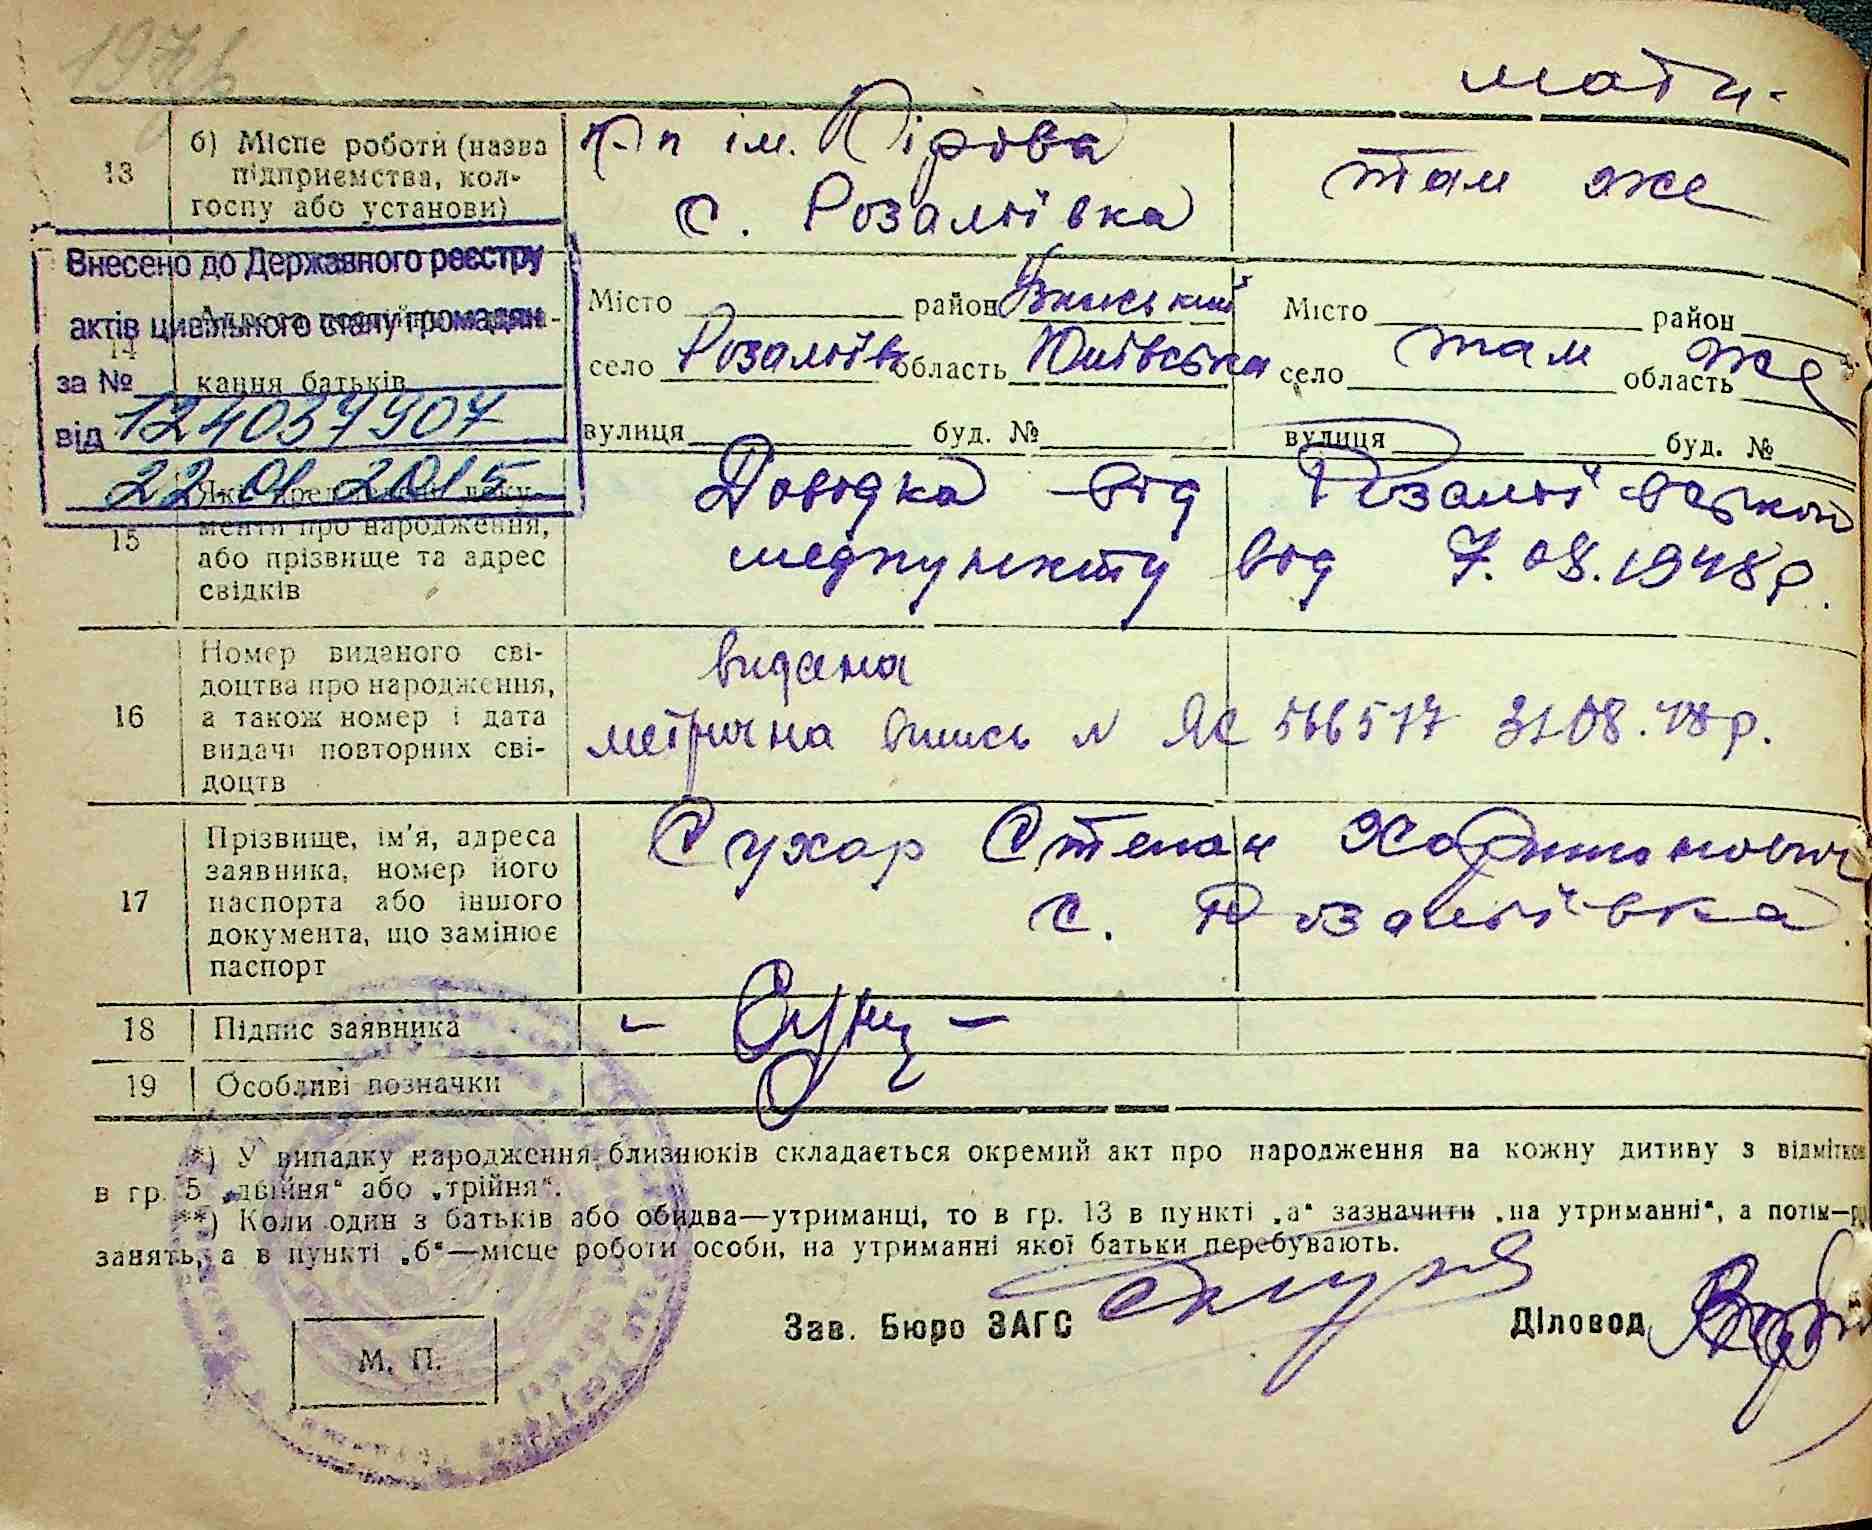 мати-
13
б) Місце роботи (назва
підприємства, кол-
госпу або установи)
К-п ім. Кірова
с. Розаліївка
там же
Внесено до Державного реєстру
актів цивільного стану громадян
за №
124037907
від
22.01.2015
14
кання батьків
Місто район
село Розаліївка область Київська
вулиця буд. №
Місто район
село там область же
вулиця буд. №
15
Які пред'явлені доку-
менти про народження,
або прізвище та адрес
свідків
Довідка від Розаліївської
медпункту від 7.08.1948 р.
16
Номер виданого сві-
доцтва про народження,
а також номер і дата
видачі повторних сві-
доцтв
видана
метрична випись N ЯС 566517 31 08.48 р.
17
Прізвище, ім'я, адреса
заявника, номер його
паспорта або іншого
документа, що замінює
паспорт
Сухар Степан Харитонович
с. Розаліївка
18
Підпис заявника
19
Особливі позначки
*) У випадку народження близнюків складається окремий акт про народження на кожну дитину з відміткою
в гр. 5 „двійня“ або „трійня“.
**) Коли один з батьків або обидва—утриманці, то в гр. 13 в пункті „а“ зазначити „на утриманні“, а потім—рід
занять, а в пункті „б“—місце роботи особи, на утриманні якої батьки перебувають.
Зав. Бюро ЗАГС
Діловод
М. П.